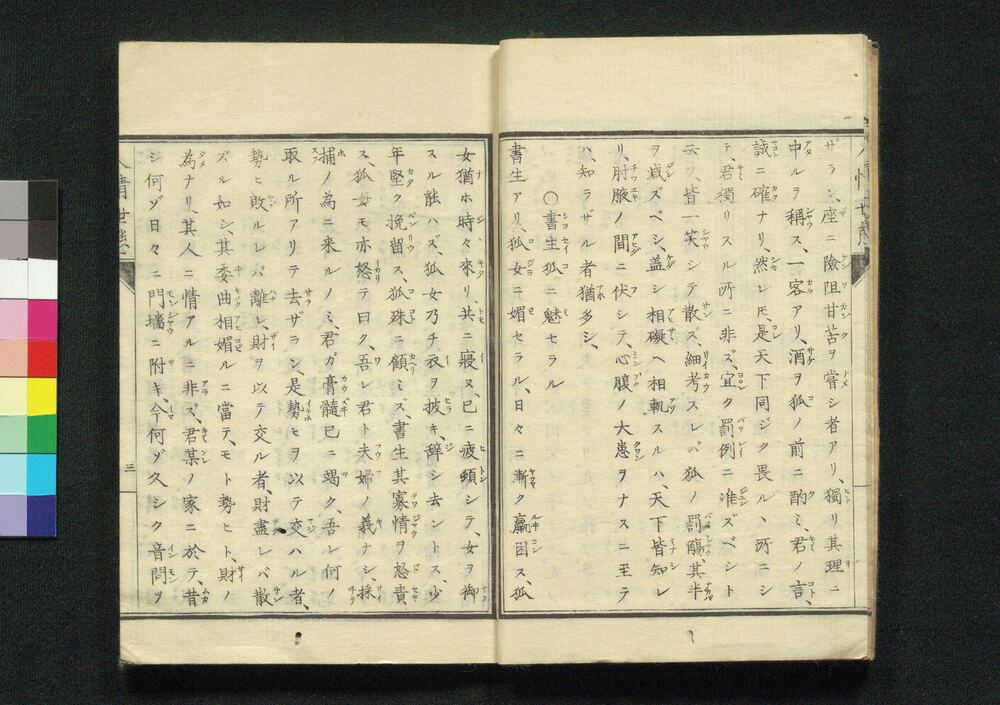 ザラン、座ニ險阻甘苦ヲ嘗シ者アリ、獨リ其理ニ
中ルヲ稱ス、一客アリ、酒ヲ狐ノ前ニ酌ミ、君ノ言、
誠ニ確ナリ、然レ𪜈、是天下同ジク畏ルヽ所ニシ
テ、君獨リスル所ニ非ズ、宜ク罰例ニ准ズベシト
云ヿ、皆一笑シテ散ズ、細考スレバ狐ノ罰觴、其半
ヲ减ズベシ、盖シ相礙ヘ相軋スルハ、天下皆知レ
リ、肘腋ノ間ニ伏シテ、心腹ノ大患ヲナスニ至テ
ハ、知ラザル者猶多シ、
○書生狐ニ魅セラル
書生アリ、狐女ニ媚セラル、日々ニ漸ク羸困ス、狐
女猶ホ時々來リ、共ニ寢ヌ、已ニ疲頓シテ、女ヲ御
スル能ハズ、狐女乃チ衣ヲ披キ、辞シ去ントス、少
年堅ク挽留ス、狐殊ニ顧ミズ、書生其寡情ヲ怒責
ス、狐女モ亦怒テ曰ク、吾レ君ト夫婦ノ義ナシ、採
捕ノ為ニ来ルノミ、君ガ膏髓已ニ竭ク、吾レ何ノ
取ル所アリテ去ザラン、是勢ヒヲ以テ交ハル者、
勢ヒ敗ルレバ離レ、財ヲ以テ交ル者、財盡レバ散
ズル如シ、其委曲相媚ルニ當テ、モト勢ヒト、財ノ
為ナリ、其人ニ情アルニ非ズ、君某ノ家ニ於テ、昔
シ何ゾ日々ニ門墻ニ附キ、今何ゾ久シク音問ヲ
三